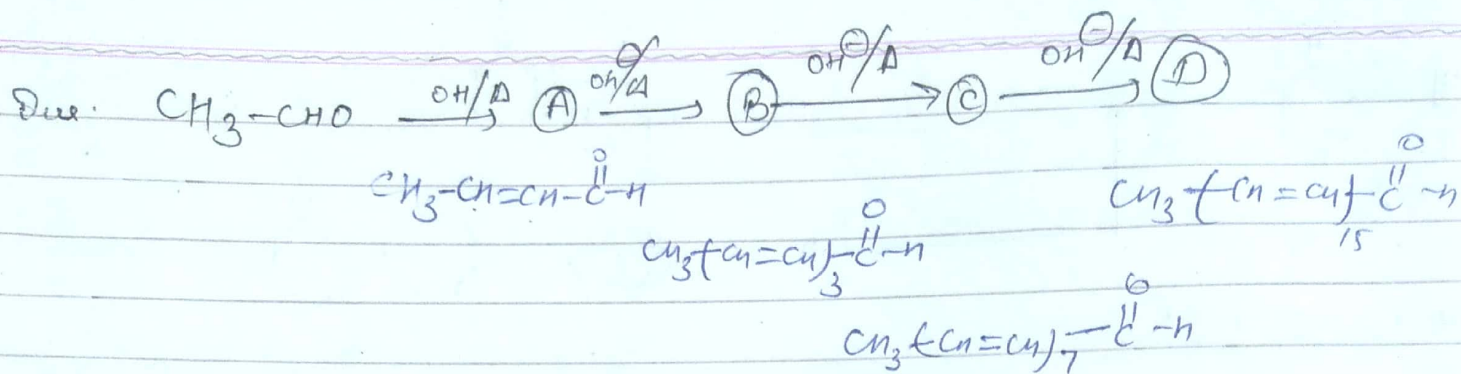 Que. CH3-CHO OH/Δ → (A) OH⊖/Δ → (B) OH⊖/Δ → (C) OH⊖/Δ → (D)
CH3-CH=CH-C(=O)-H
CH3-(CH=CH)3-C(=O)-H
CH3-(CH=CH)7-C(=O)-H
CH3-(CH=CH)15-C(=O)-H